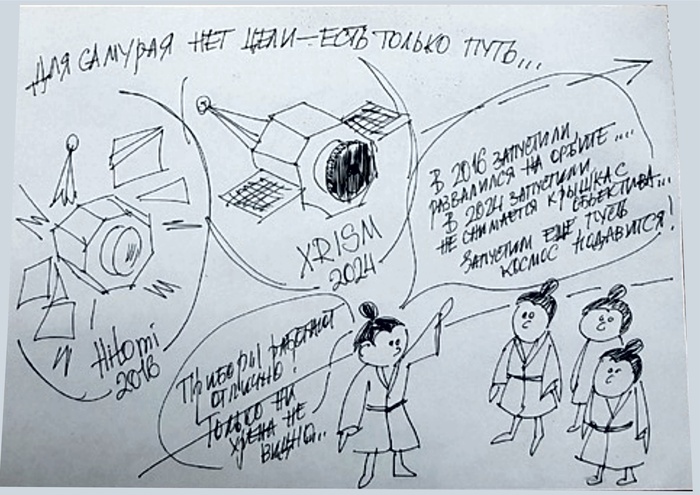 ДЛЯ САМУРАЯ НЕТ ЦЕЛИ — ЕСТЬ ТОЛЬКО ПУТЬ...
Hitomi
2016
XRISM
2024
В 2016 ЗАПУСТИЛИ
РАЗВАЛИЛСЯ НА ОРБИТЕ....
В 2024 ЗАПУСТИЛИ
НЕ СНИМАЕТСЯ КРЫШКА С
ОБЪЕКТИВА...
ЗАПУСТИМ ЕЩЕ ПУСТЬ
КОСМОС ПОДАВИТСЯ!
ПРИБОРЫ РАБОТАЮТ
ОТЛИЧНО!
ТОЛЬКО НИ
ХРЕНА НЕ
ВИДНО...